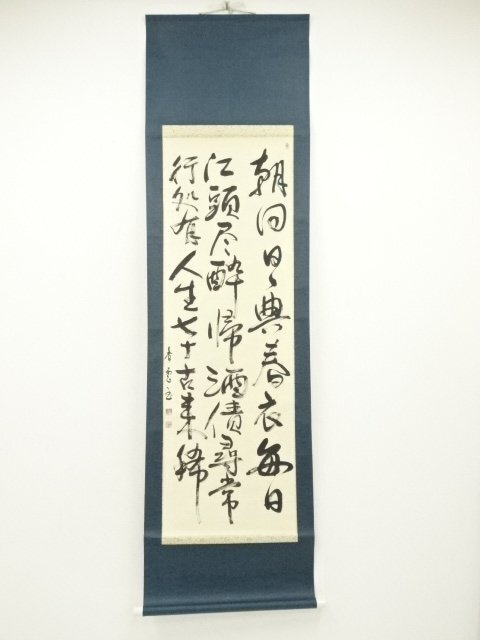 朝回日々典春衣毎日
江頭尽酔帰酒債尋常
行処有人生七十古来稀